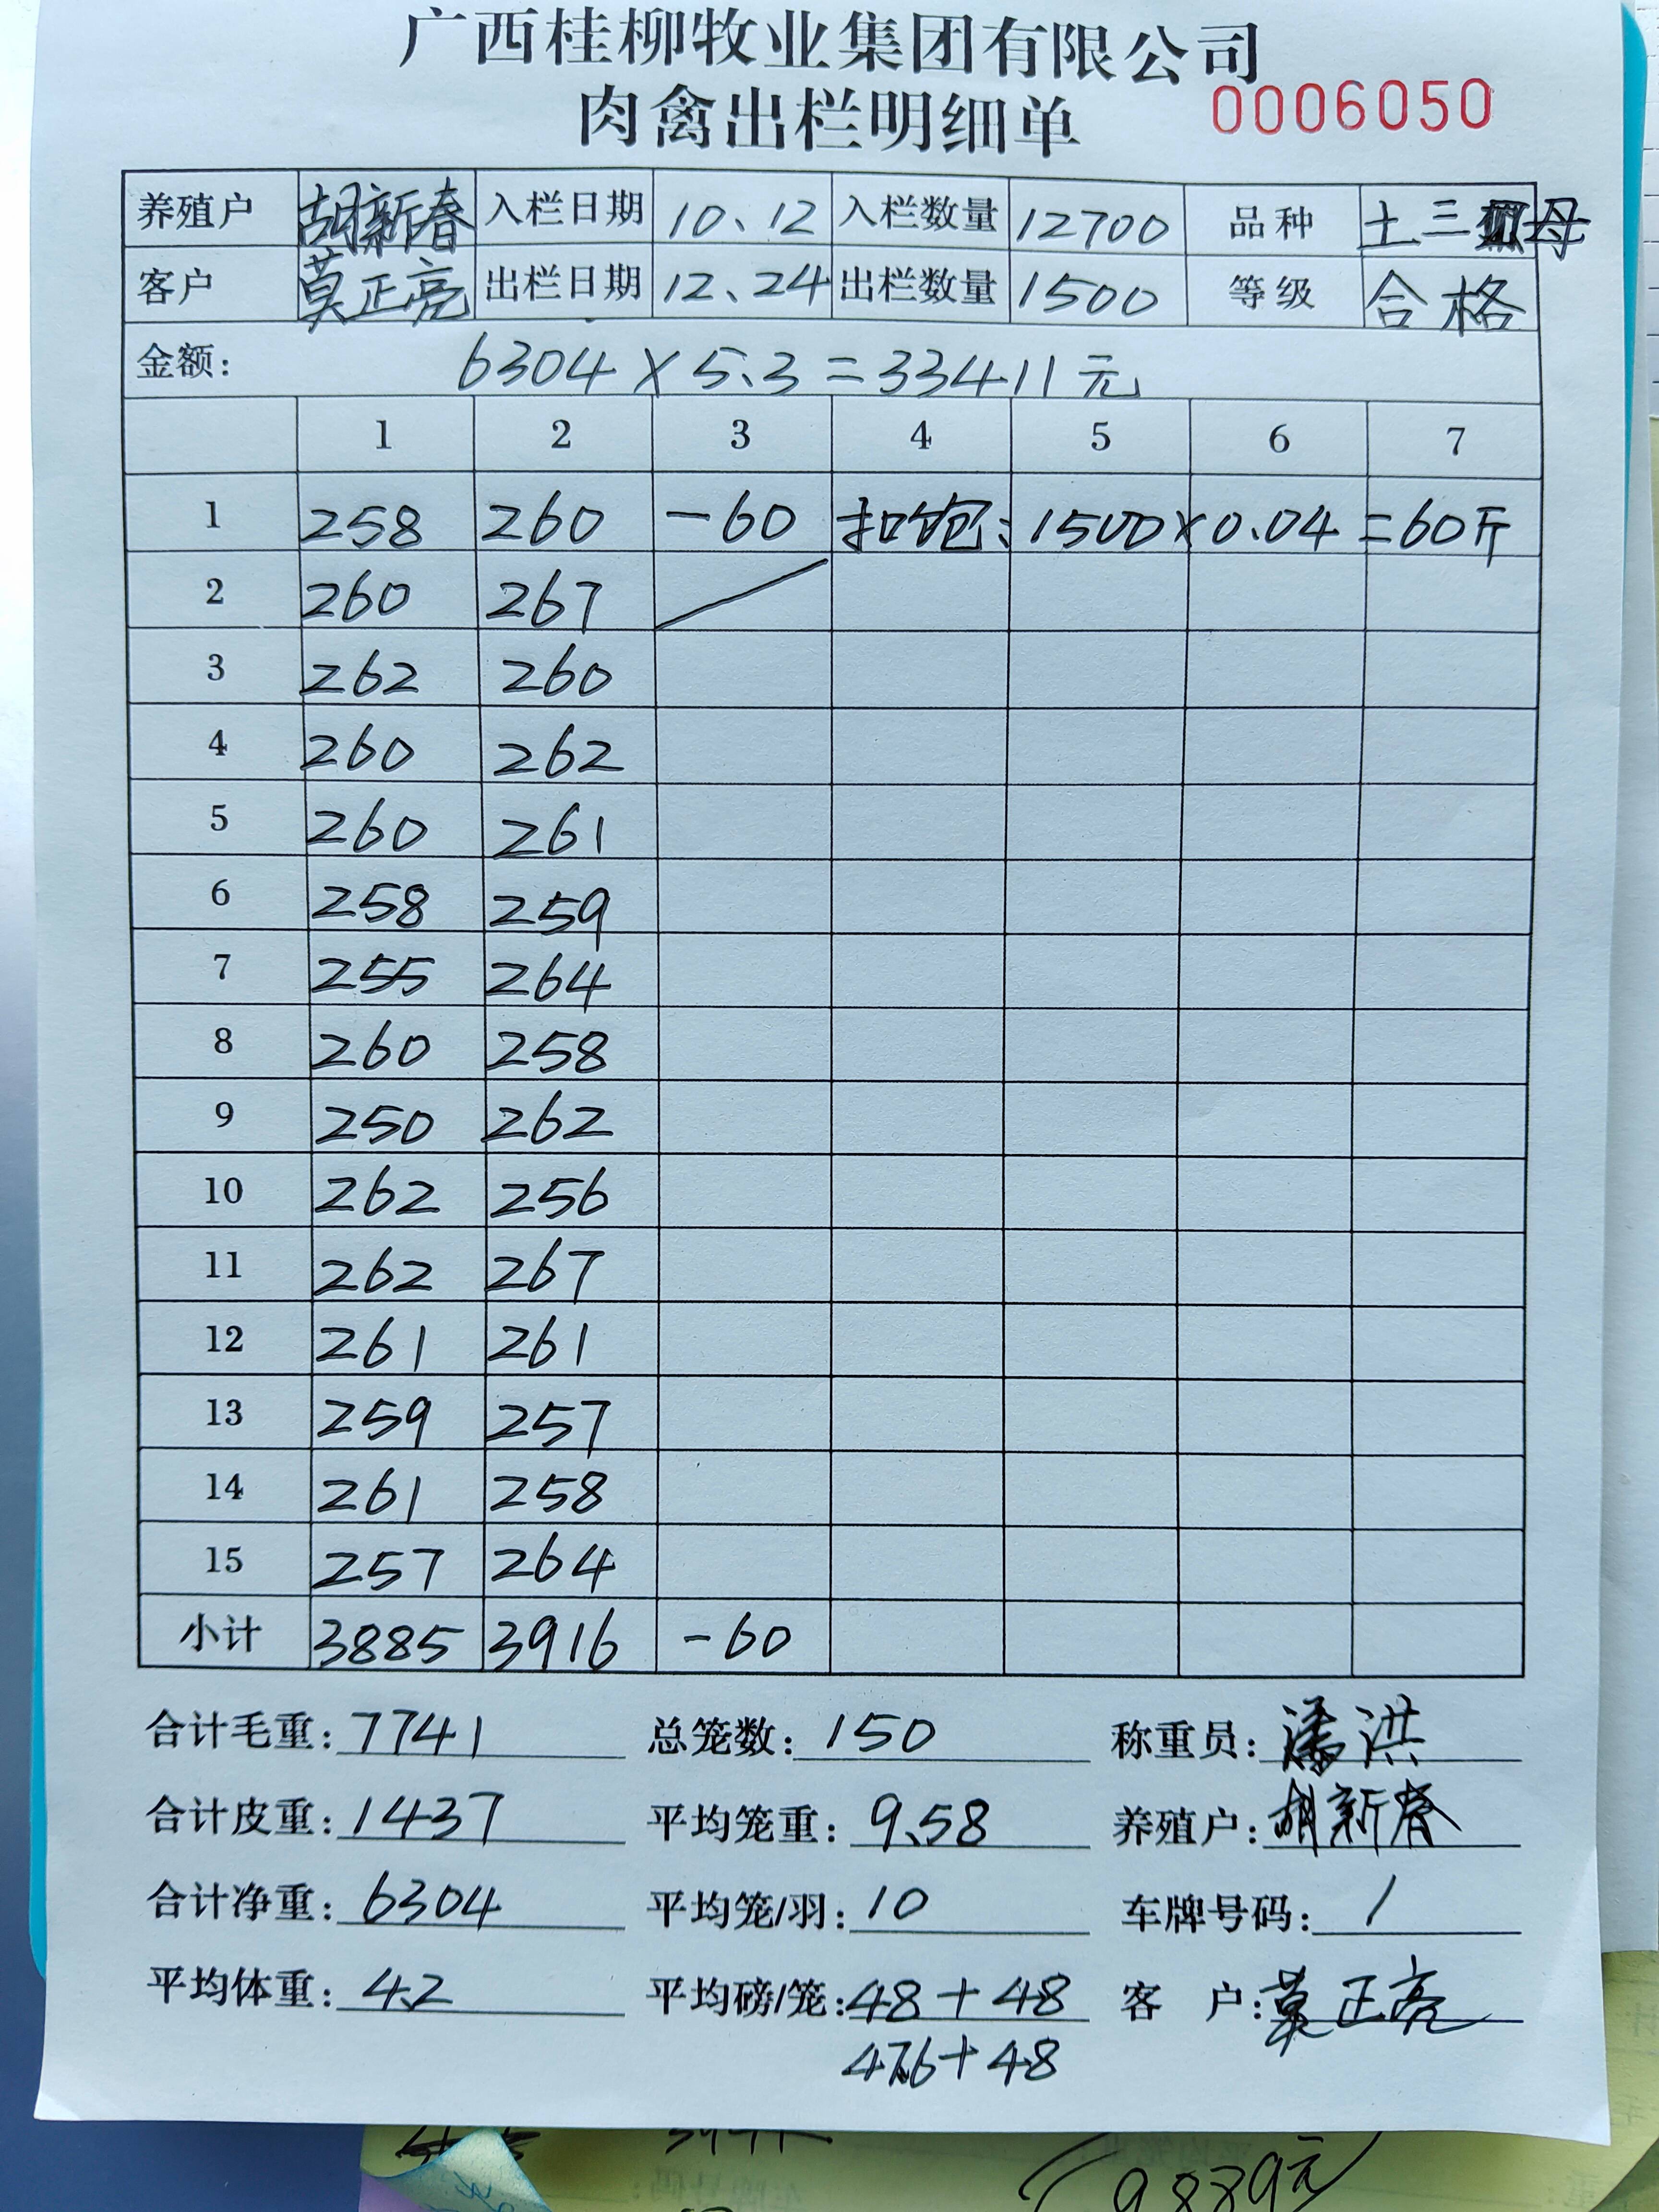 广西桂柳牧业集团有限公司
肉禽出栏明细单 0006050
养殖户 胡新春 入栏日期 10、12 入栏数量 12700 品种 土三母
客户 莫正亮 出栏日期 12、24 出栏数量 1500 等级 合格
金额: 6304×5.3=33411元
1 2 3 4 5 6 7
1 258 260 -60 扣饱: 1500×0.04=60斤
2 260 267
3 262 260
4 260 262
5 260 261
6 258 259
7 255 264
8 260 258
9 250 262
10 262 256
11 262 267
12 261 261
13 259 257
14 261 258
15 257 264
小计 3885 3916 -60
合计毛重: 7741 总笼数: 150 称重员: 潘洪
合计皮重: 1437 平均笼重: 9.58 养殖户: 胡新春
合计净重: 6304 平均笼/羽: 10 车牌号码: 1
平均体重: 4.2 平均磅/笼: 48+48 客 户: 莫正亮
47.6+48
9889元